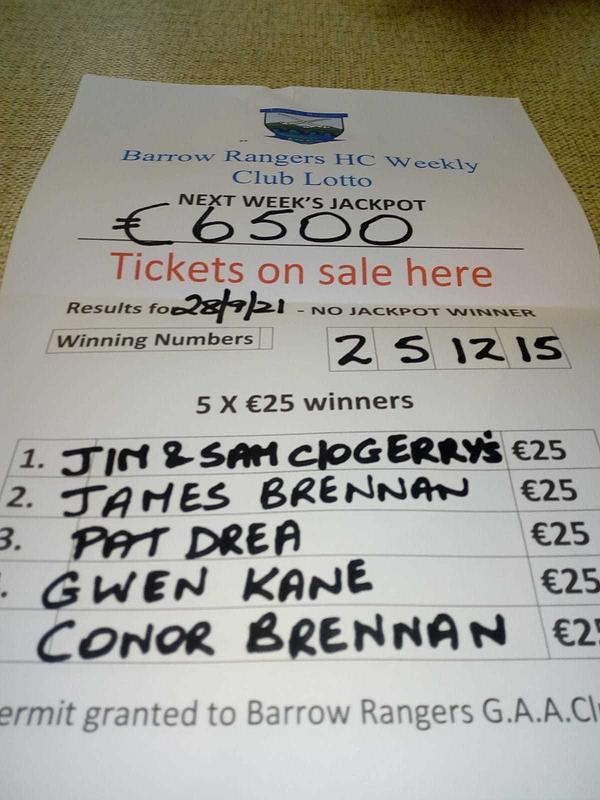 Barrow Rangers HC Weekly
Club Lotto
NEXT WEEK'S JACKPOT
€6500
Tickets on sale here
Results for 28/9/21 - NO JACKPOT WINNER
Winning Numbers 2 5 12 15
5 X €25 winners
1. JIM & SAM C/O GERRY'S €25
2. JAMES BRENNAN €25
3. PAT DREA €25
. GWEN KANE €25
CONOR BRENNAN €25
ermit granted to Barrow Rangers G.A.A.Cl